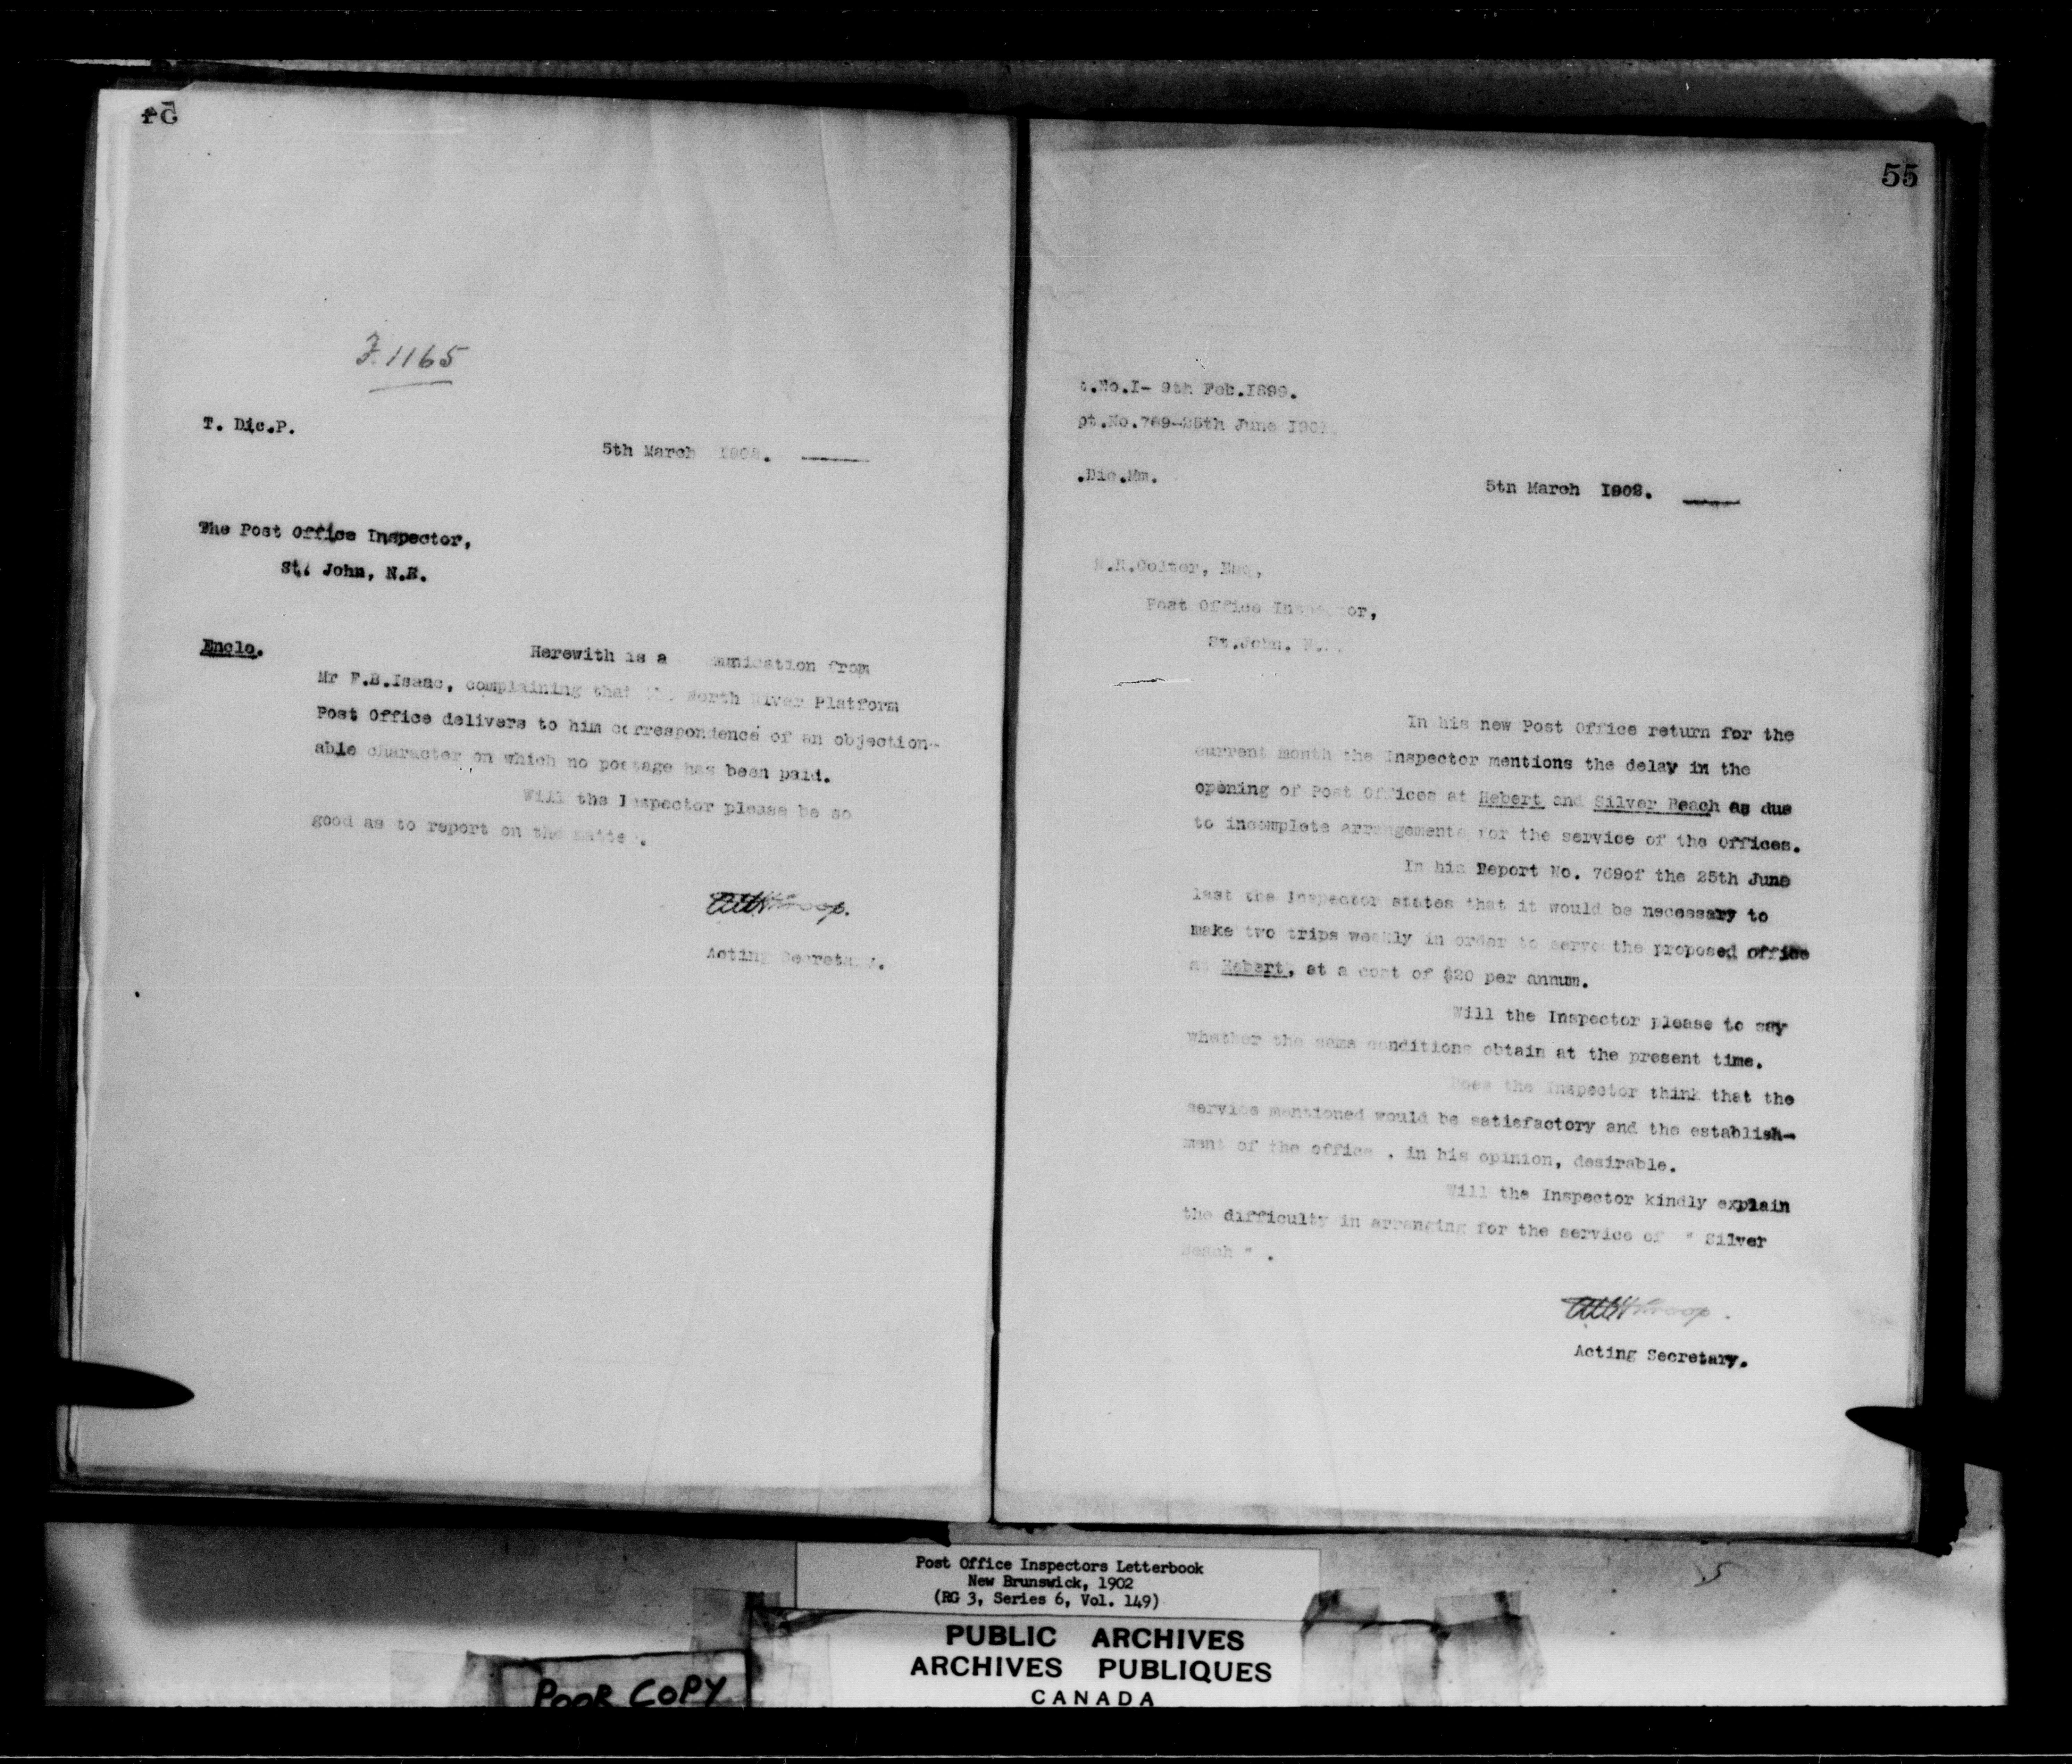 54
F.1165
T. Dic.P.
5th March 1902.
The Post Office Inspector,
St. John, N.B.
Enclo.
Herewith is a from
Mr F.B.Isaac, complaining that North River Platform
Post Office delivers to him correspondence of an objection-
able character on which no postage has been paid.
Will the Inspector please be so
good as to report on the matte .
Acting Secretary.
55
t.No.I- 9th Feb.1899.
pt.No.769-25th June 190
.Dic.Mm.
5th March 1902.
N.R.Colter, Esq,
Post Office Inspector,
St.John. N.
In his new Post Office return for the
current month the Inspector mentions the delay in the
opening of Post Offices at Hebert and Silver Beach as due
to incomplete arrangements for the service of the Offices.
In his Report No. 769of the 25th June
last the Inspector states that it would be necessary to
make two trips weekly in order to serve the proposed office
at Hebert, at a cost of $20 per annum.
Will the Inspector please to say
whether the same conditions obtain at the present time.
Does the Inspector think that the
service mentioned would be satisfactory and the establish-
ment of the office , in his opinion, desirable.
Will the Inspector kindly explain
the difficulty in arranging for the service of " Silver
Beach " .
Acting Secretary.
Post Office Inspectors Letterbook
New Brunswick, 1902
(RG 3, Series 6, Vol. 149)
PUBLIC ARCHIVES
ARCHIVES PUBLIQUES
CANADA
POOR COPY